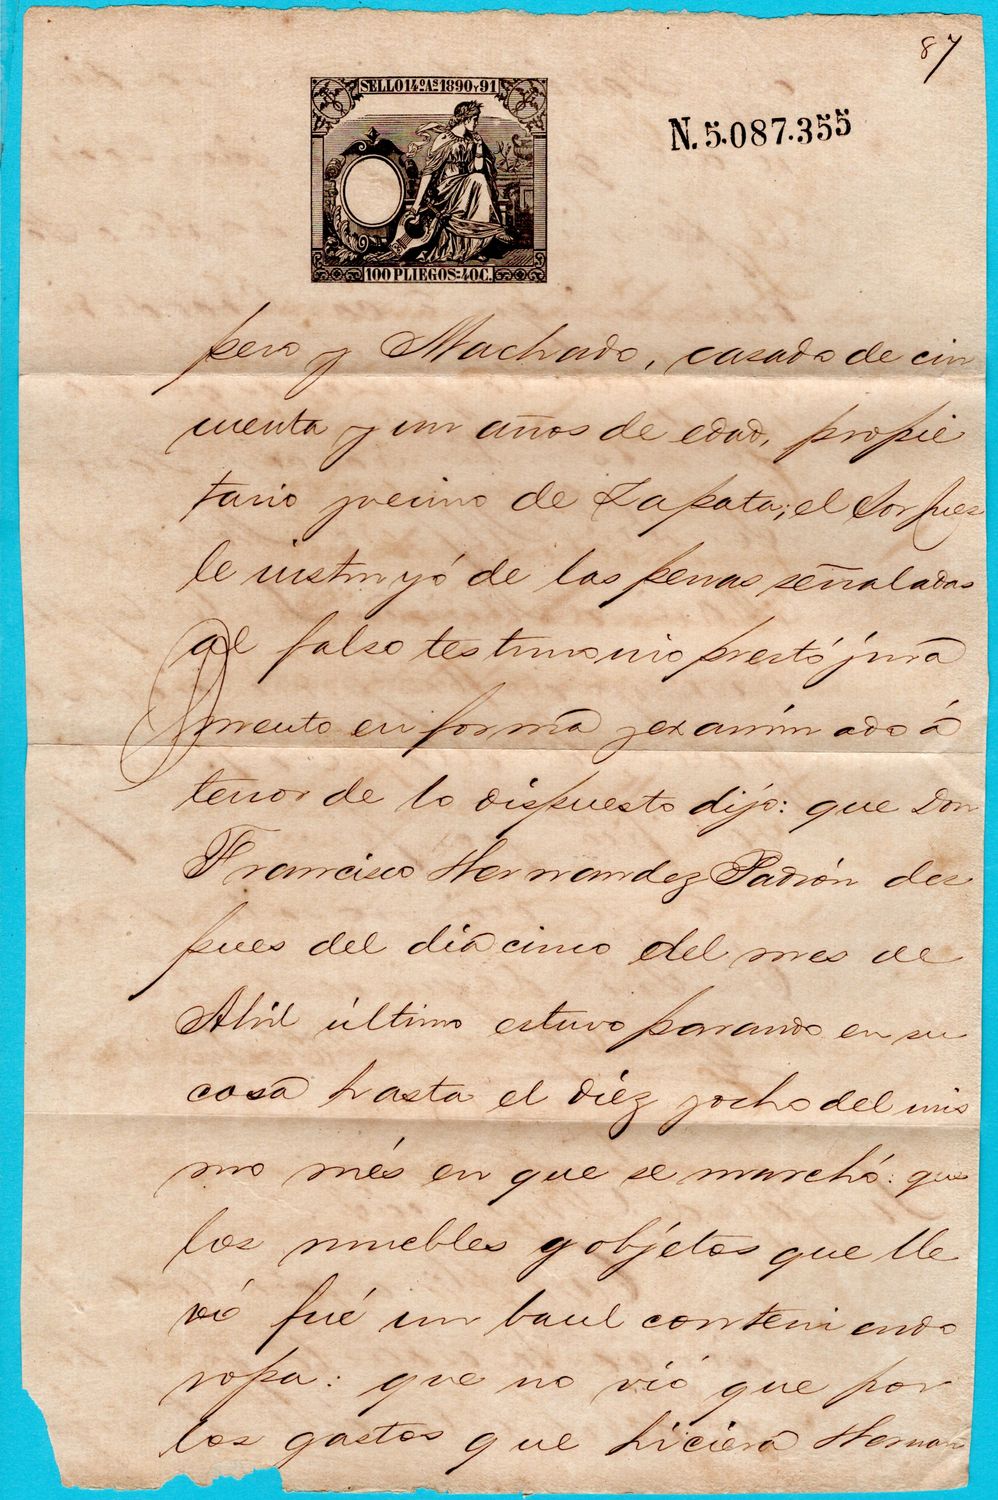 87
SELLO 14º AS 1890 Y 91
N. 5.087.355
100 PLIEGOS=40C.
pero y Machado, casado de cin
cuenta y un años de edad, propie
tario y vecino de Zapata; el Sor Juez
le instruyó de las penas señaladas
al falso testimonio prestó jura
mento en forma y examinado á
tenor de lo dispuesto dijo: que Don
Francisco Hernandez Padrón des
pues del dia cinco del mes de
Abril último estuvo parando en su
casa hasta el diez y ocho del mis
mo més en que se marchó: que
los muebles y objetos que lle
vó fué un baul conteniendo
ropa: que no vió que por
los gastos que hiciera Hernan